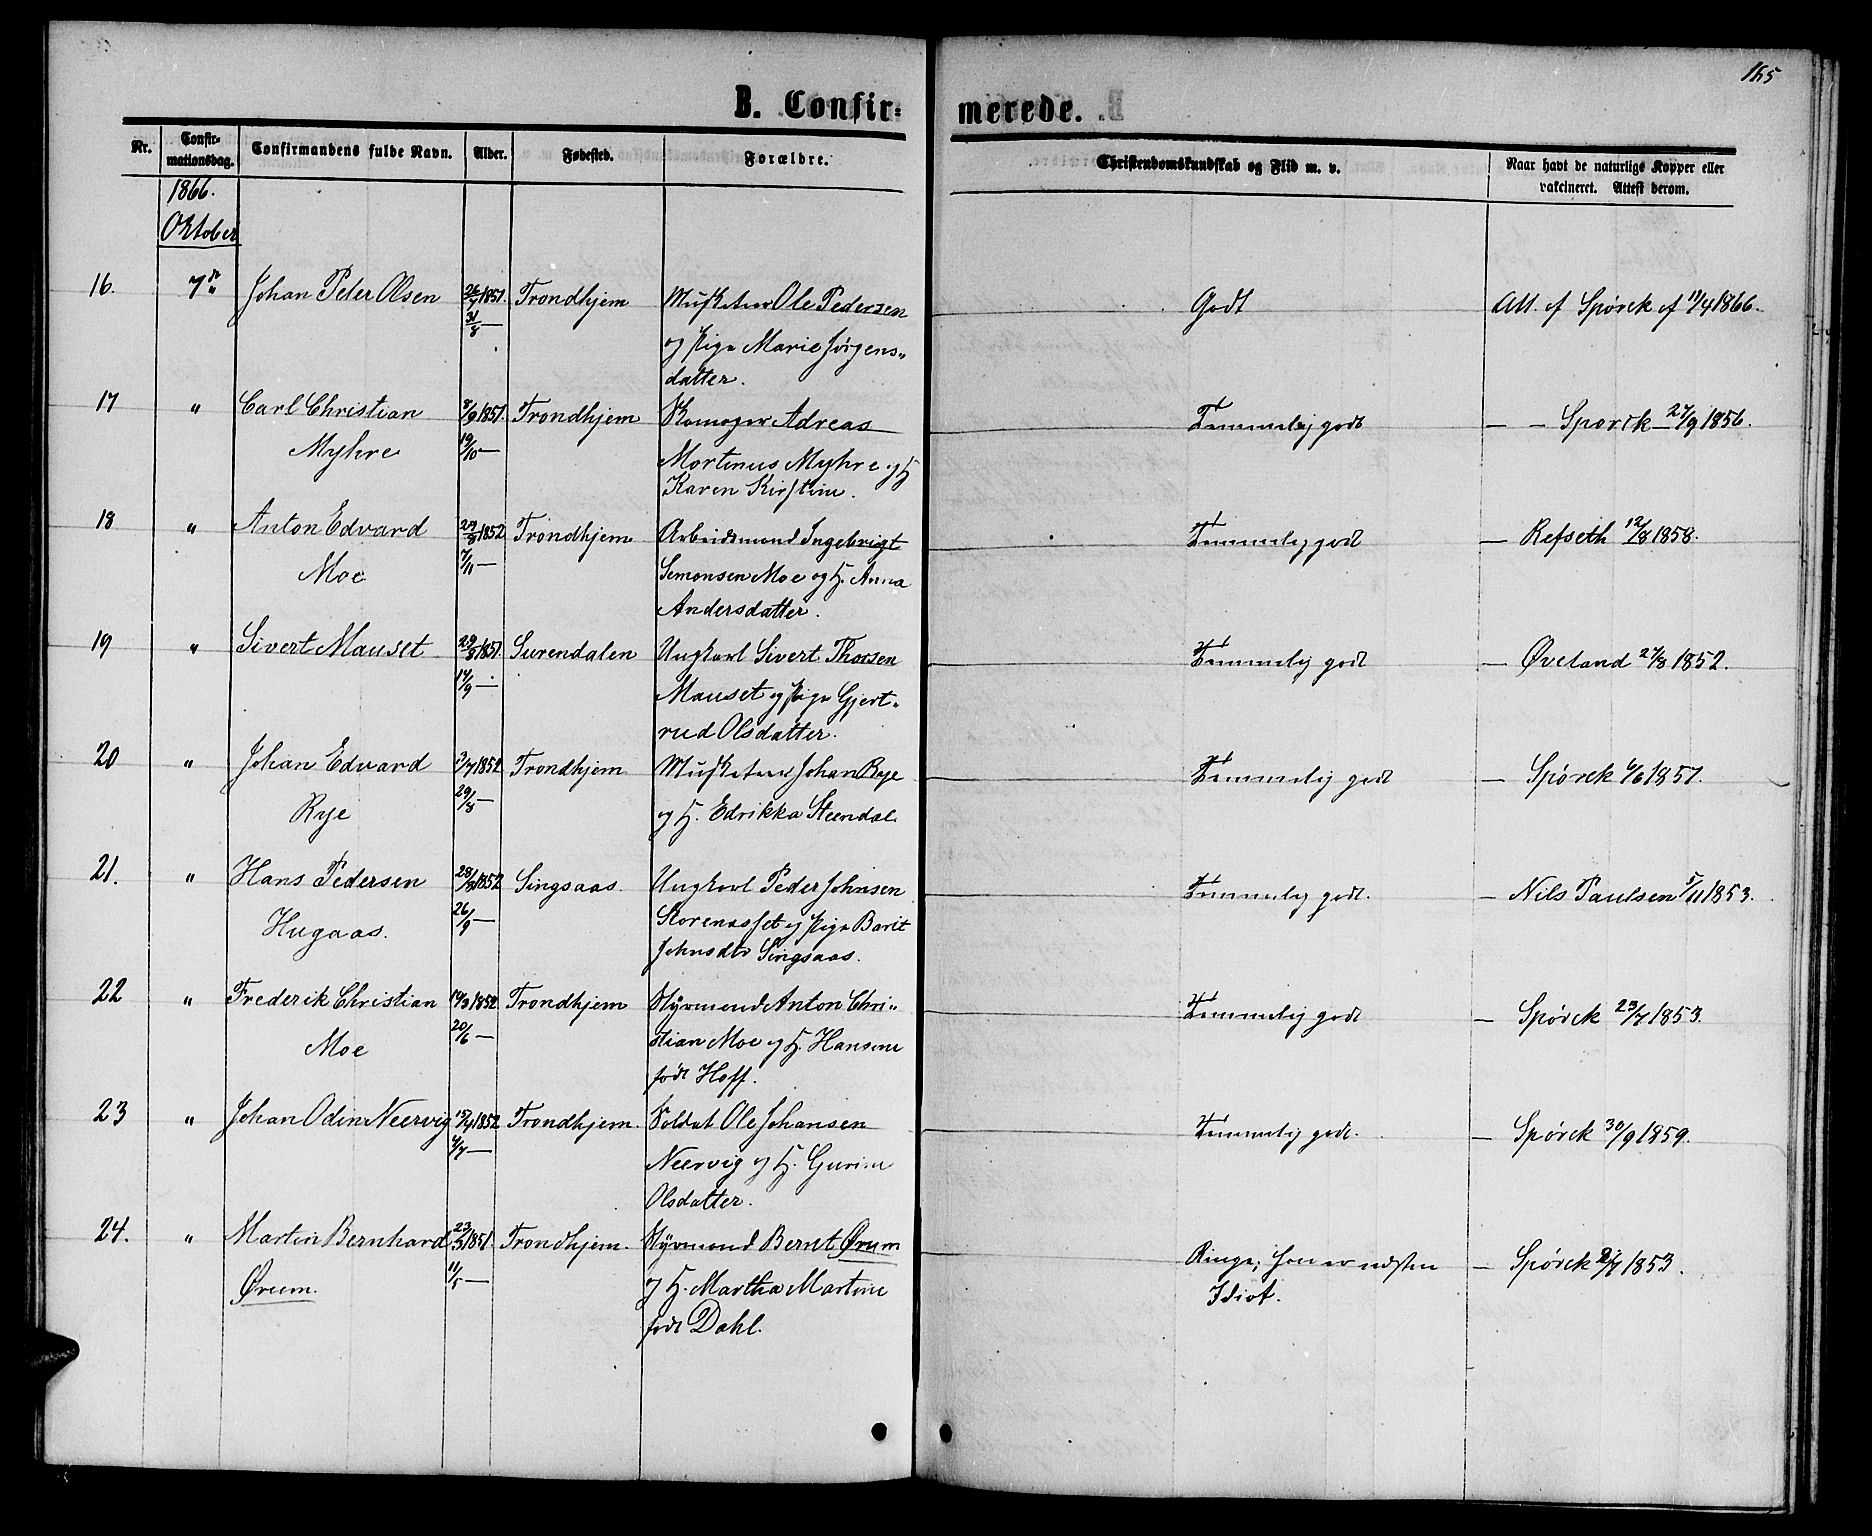 165
B. Confir= merede.
Nr. Confir-mationsdag. Confirmandens fulde Navn. Alder. Fødested. Forældre. Christendomskundskab og Flid m. v. Naar havt de naturlige Kopper eller vakcineret. Attest derom.
1866.
Oktober
16. 7de Johan Peter Olsen 26/7 1851. Trondhjem Musketeer Ole Pedersen Godt Att. af Spørck af 11/4 1866.
31/8 — og Pige Marie Jørgens„
datter.
17 " Carl Christian 8/9 1851. Trondhjem Skomager Adreas Temmelig godt — — Spørck — 27/9 1856.
Myhre 19/10 — Mortinus Myhre og H
Karen Kirstine.
18 " Anton Edvard 29/8 1852 Trondhjem Arbeidsmand Ingebrigt Temmelig godt — Refseth 12/8 1858.
Moe 7/11 — Semonsen Moe og H. Anna
Andersdatter.
19 " Sivert Mauset 29/8 1851. Surendalen Ungkarl Sivert Thorsen Temmelig godt — Øveland 27/8 1852.
14/9 — Mauset og Pige Gjert„
rud Olsdatter.
20 " Johan Edvard 3/7 1852 Trondhjem Musketeer Johan Rye Temmelig godt — Spørck 6/6 1857.
Rye 29/8 — og H. Edrikka Steendal
21. " Hans Pedersen 28/8 1852 Singsaas. Ungkarl Peder Johnsen Temmelig godt. — Nils Paulsen 5/11 1853.
Hugaas. 26/9 — Storenasset og Pige Barit
Johnsdtr Singsaas.
22 " Frederik Christian 14/3 1852 Trondhjem Styrmand Anton Chri„ Temmelig godt — Spørck 23/7 1853.
Moe 20/6 — stian Moe og H. Hansine
født Hoff.
23 " Johan Odin Neervig 15/4 1852 Trondhjem. Soldat Ole Johansen Temmelig godt. — Spørck 30/9 1859.
4/7 — Neervig og H. Gurine
Olsdatter.
24. " Martin Bernhard 23/3 1851. Trondhjem. Styrmand Bernt Ørum Ringe; han er næsten — Spørck 1853.
Ørum. 11/5 — og H. Martha Martine Idiot.
født Dahl.